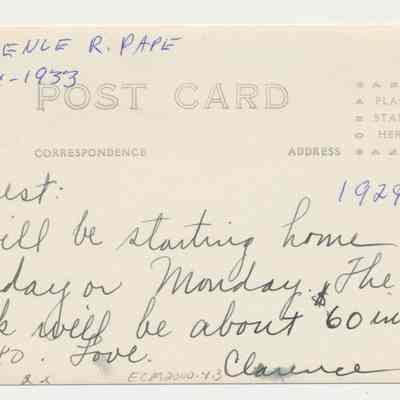 ENCE R. PAPE
-1933
POST CARD
CORRESPONDENCE
ADDRESS
PLA
STA
HER
1929
est:
ill be starting home
day or Monday. The
k will be about $60 in
40. Love.
Clarence
ECM2000.43